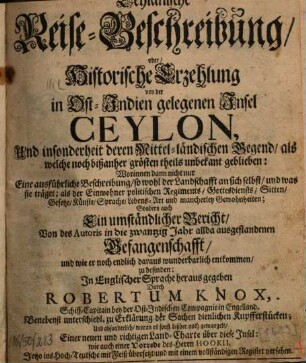 Ceylanische
Reise-Beschreibung/
oder/
Historische Erzehlung
von der
in Ost-Indien gelegenen Insel
CEYLON,
Und insonderheit deren Mittel-ländischen Gegend/ als
welche noch bißanher grösten theils unbekant geblieben:
Worinnen dann nicht nur
Eine ausführliche Beschreibung/ so wohl der Landschafft an sich selbst/ und was
sie träget: als der Einwohner politischen Regiments/ Gottesdiensts/ Sitten/
Gesetz/ Künste/ Sprache/ Lebens-Art und mancherley Gewohnheiten;
Sondern auch
Ein umständlicher Bericht/
Von des Autoris in die zwantzig Jahr allda ausgestandenen
Gefangenschafft/
und wie er noch endlich daraus wunderbarlich entkommen/
zu befinden:
In Englischer Sprach heraus gegeben
von
ROBERTUM KNOX,
Schiff-Capitain bey der Ost-Indischen Compagnie in Engelland,
Benebenst unterschiedl. zu Erklärung der Sachen dienlichen Kupfferstücken;
Einer neuen und richtigen Land-Charte über diese Insel:
wie auch einer Vorrede des Herrn HOOKII,
Jetzo ins Hoch-Teutsche mit Fleiß übersetzt und mit einem vollständigen Register versehen.